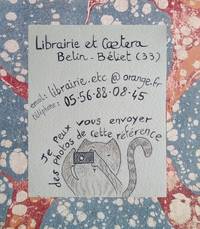 Librairie et Cœtera
Belin-Béliet (33)
email: librairie.etc@orange.fr
téléphone: 05-56-88-08-45
Je peux vous envoyer
des photos de cette référence